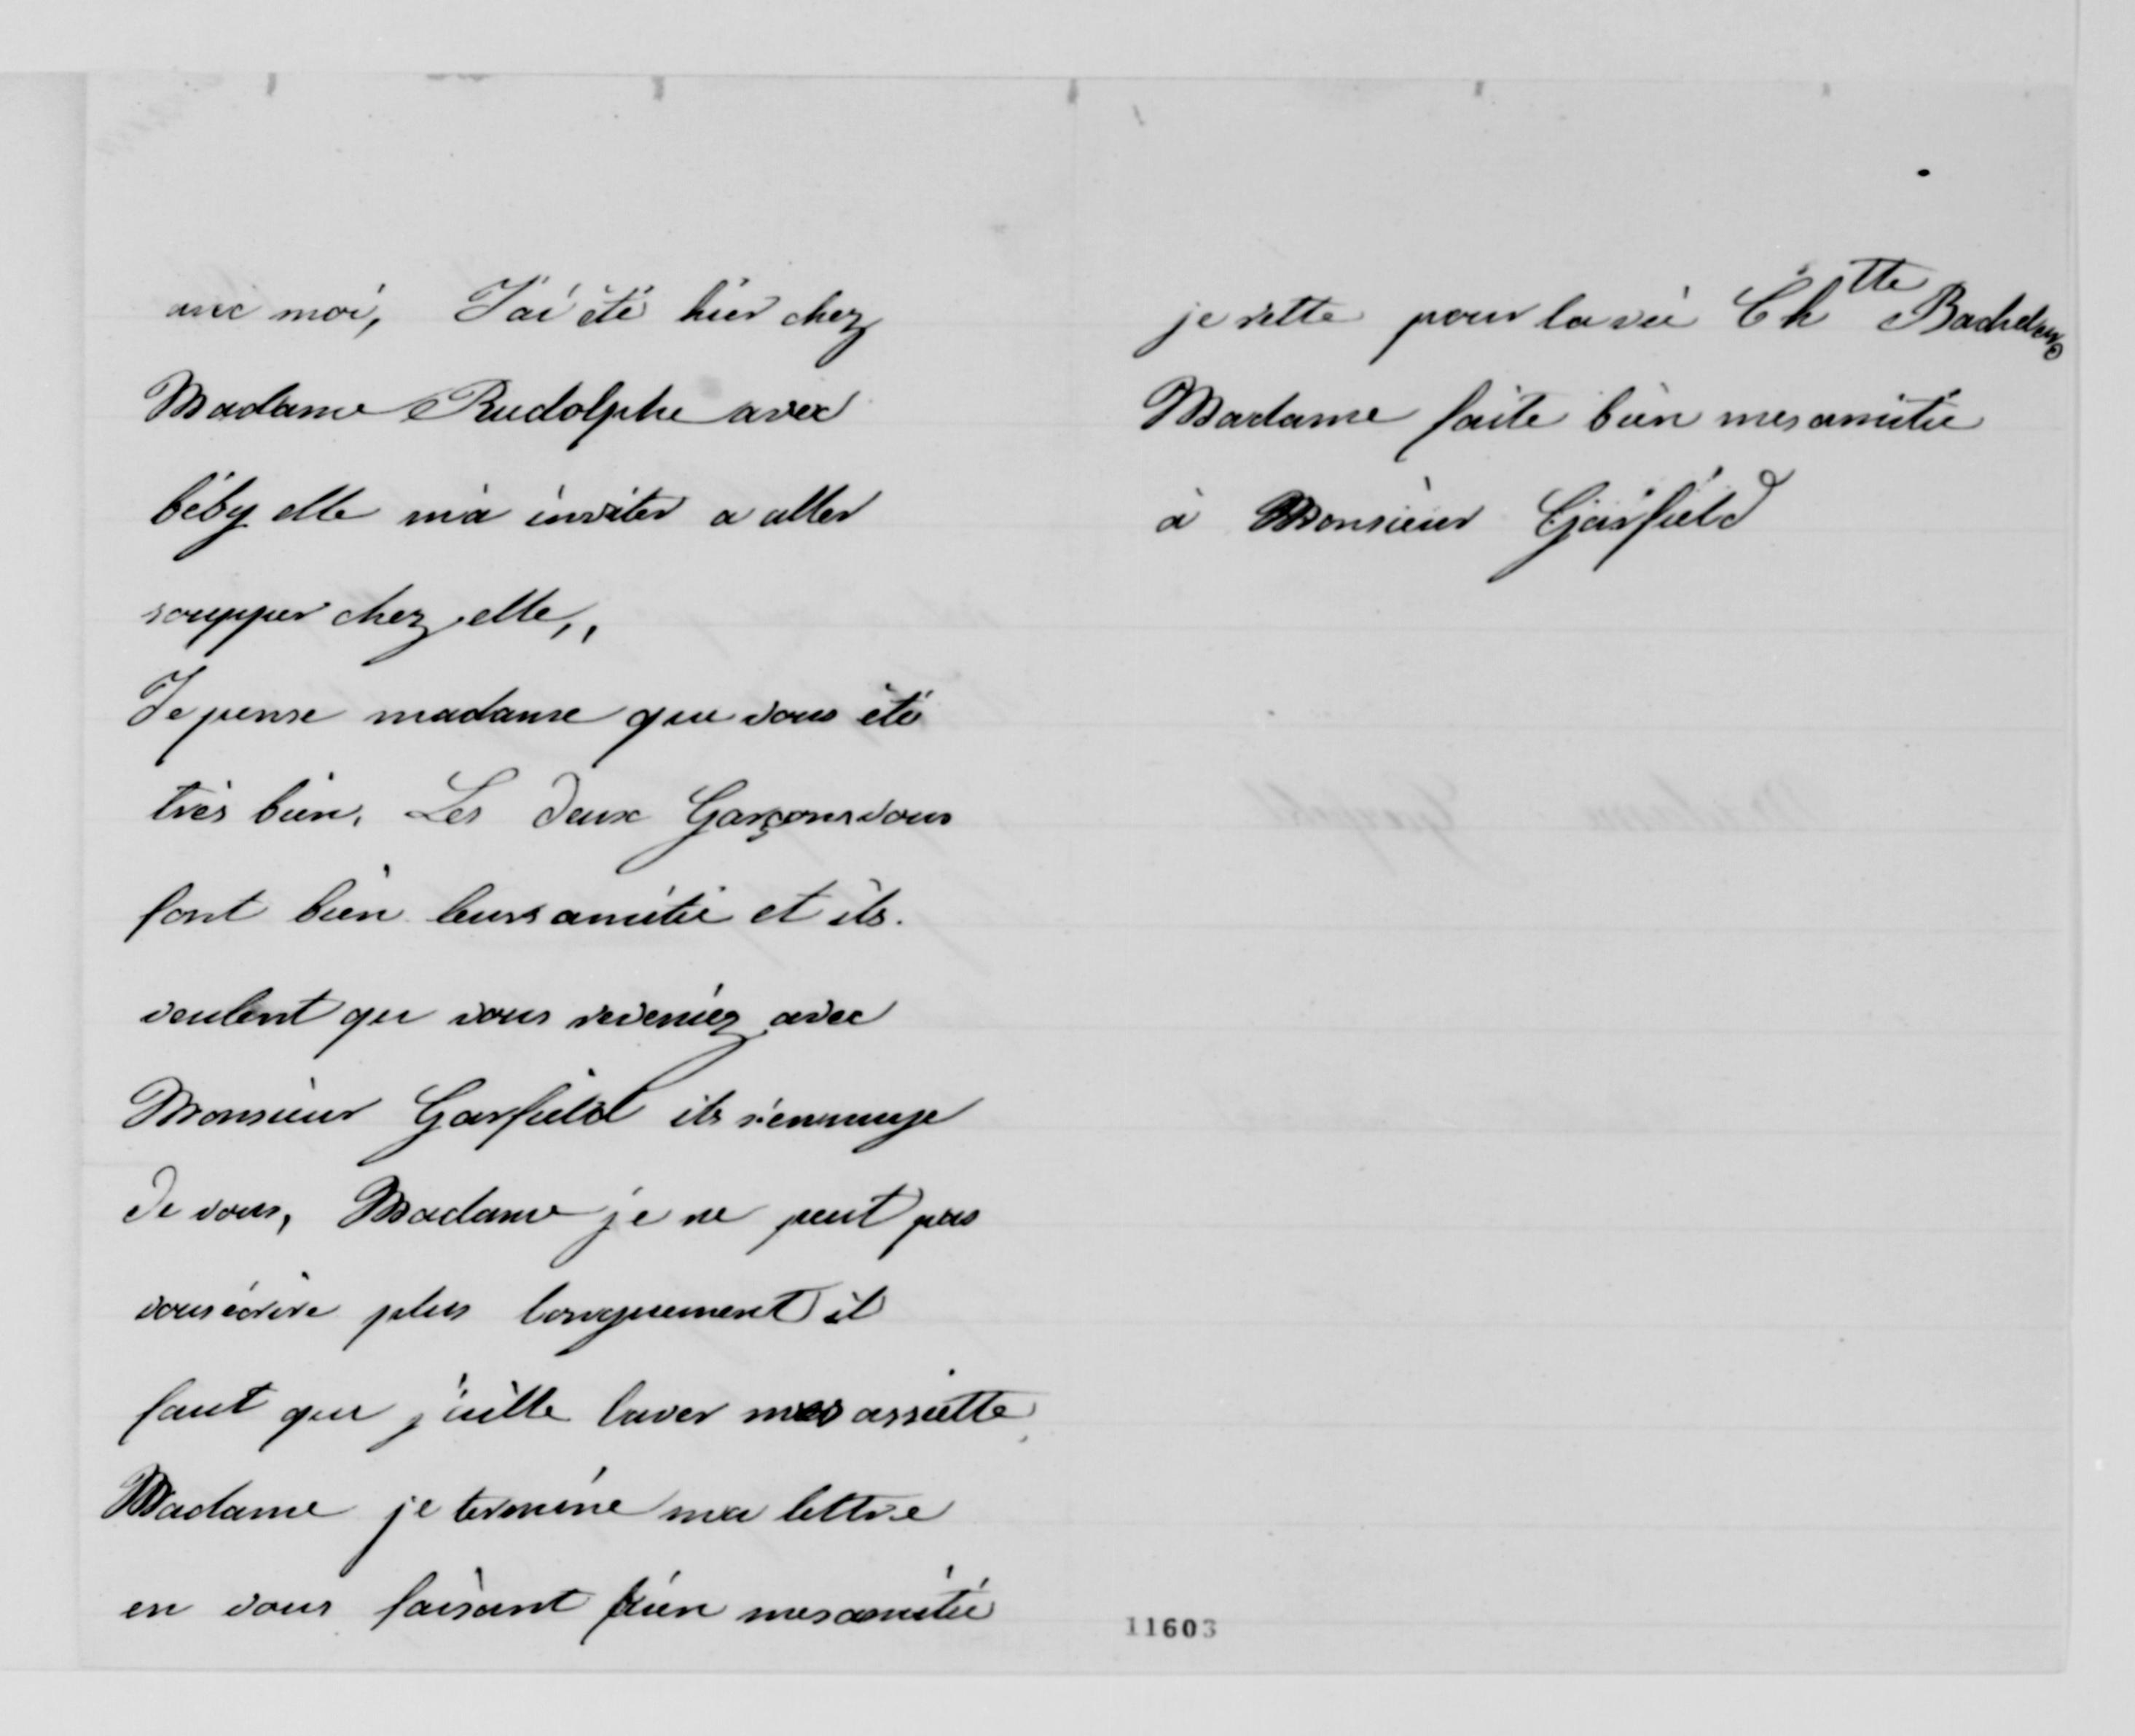 avec moi, J'ai été hier chez
Madame Rudolphe avec
béby elle m'a inviter a aller
soupper chez elle,,
Je pense madame que vous éte
très bien. Les deux Garçons vous
font bien leurs amitié et ils.
veulent que vous reveniez avec
Monsieur Garfield ils s'ennuye
de vous, Madame je ne peut pas
vous écrire plus longuement il
faut que j'aille laver mes assiette
Madame je termine ma lettre
en vous faisant bien mes amitié
je reste pour la vie Ch tte
Madame faite bien mes amitié
à Monsieur Garfield
11603